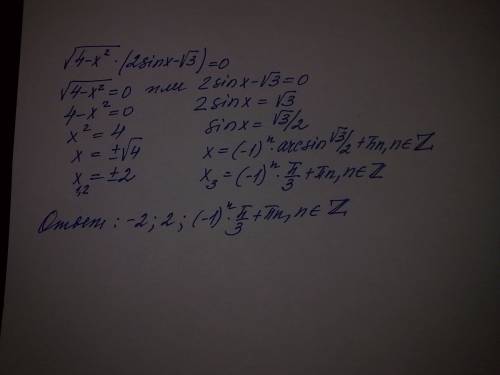 √4-x² · (2sinx-√3)=0
√4-x² =0 или 2sinx-√3=0
4-x²=0 2sinx=√3
x²=4 sinx=√3/2
x=±√4 x=(-1)ⁿ·arcsin √3/2+πn, n∈ℤ
x₁,₂=±2 x₃=(-1)ⁿ·π/3+πn, n∈ℤ
Ответ: -2; 2; (-1)ⁿ·π/3+πn, n∈ℤ